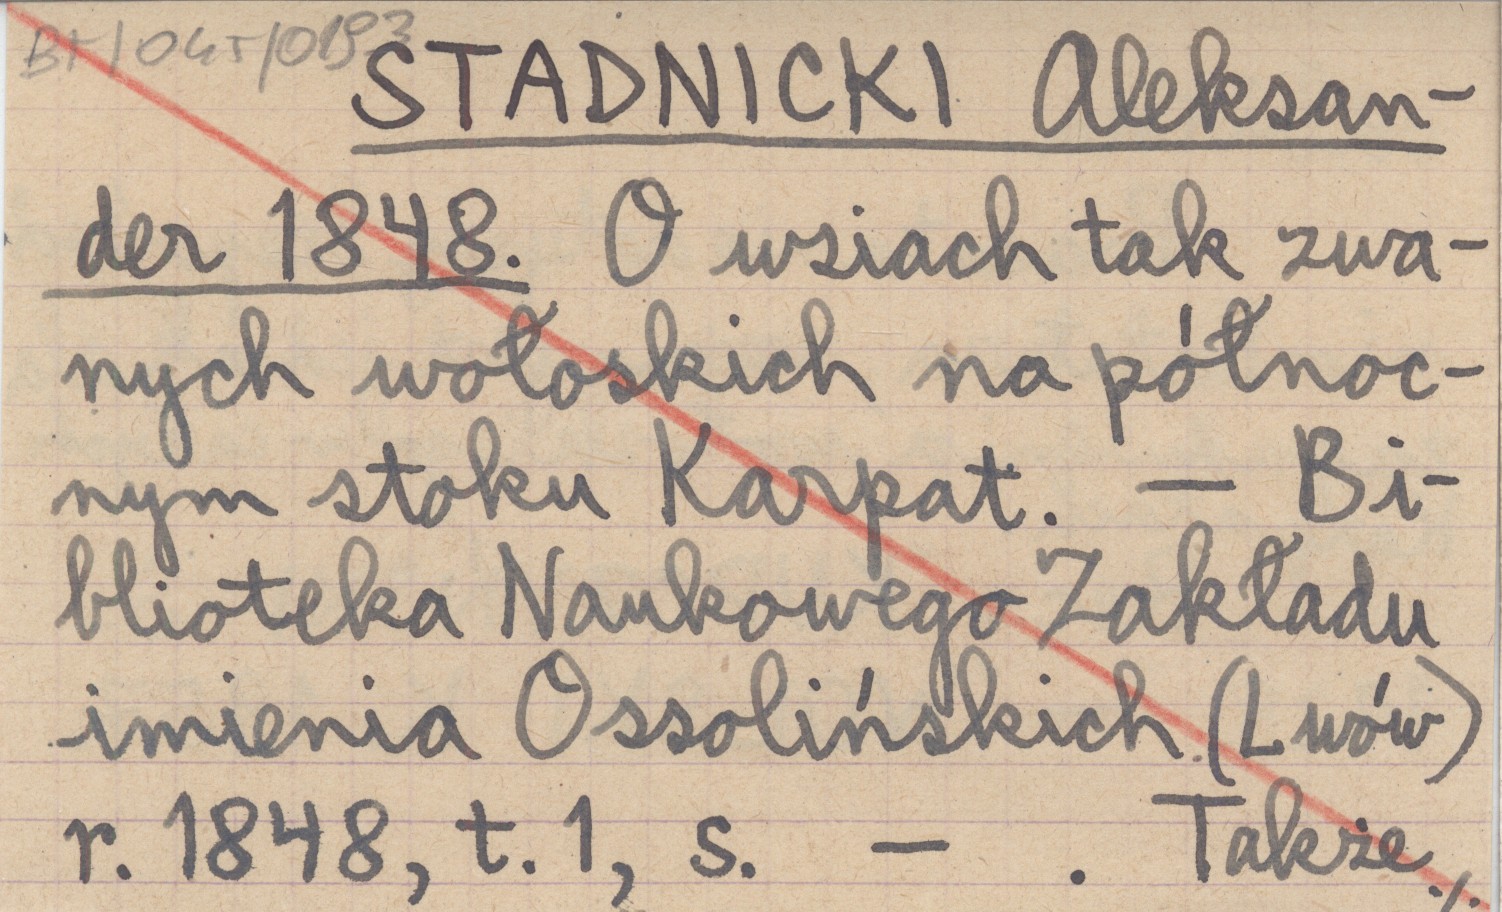 BT/045/0193
STADNICKI Aleksan-
der 1848. O wsiach tak zwa-
nych wołoskich na północ-
nym stoku Karpat. — Bi-
blioteka Naukowego Zakładu
imienia Ossolińskich (Lwów)
r. 1848, t. 1, s. — . Także ./.